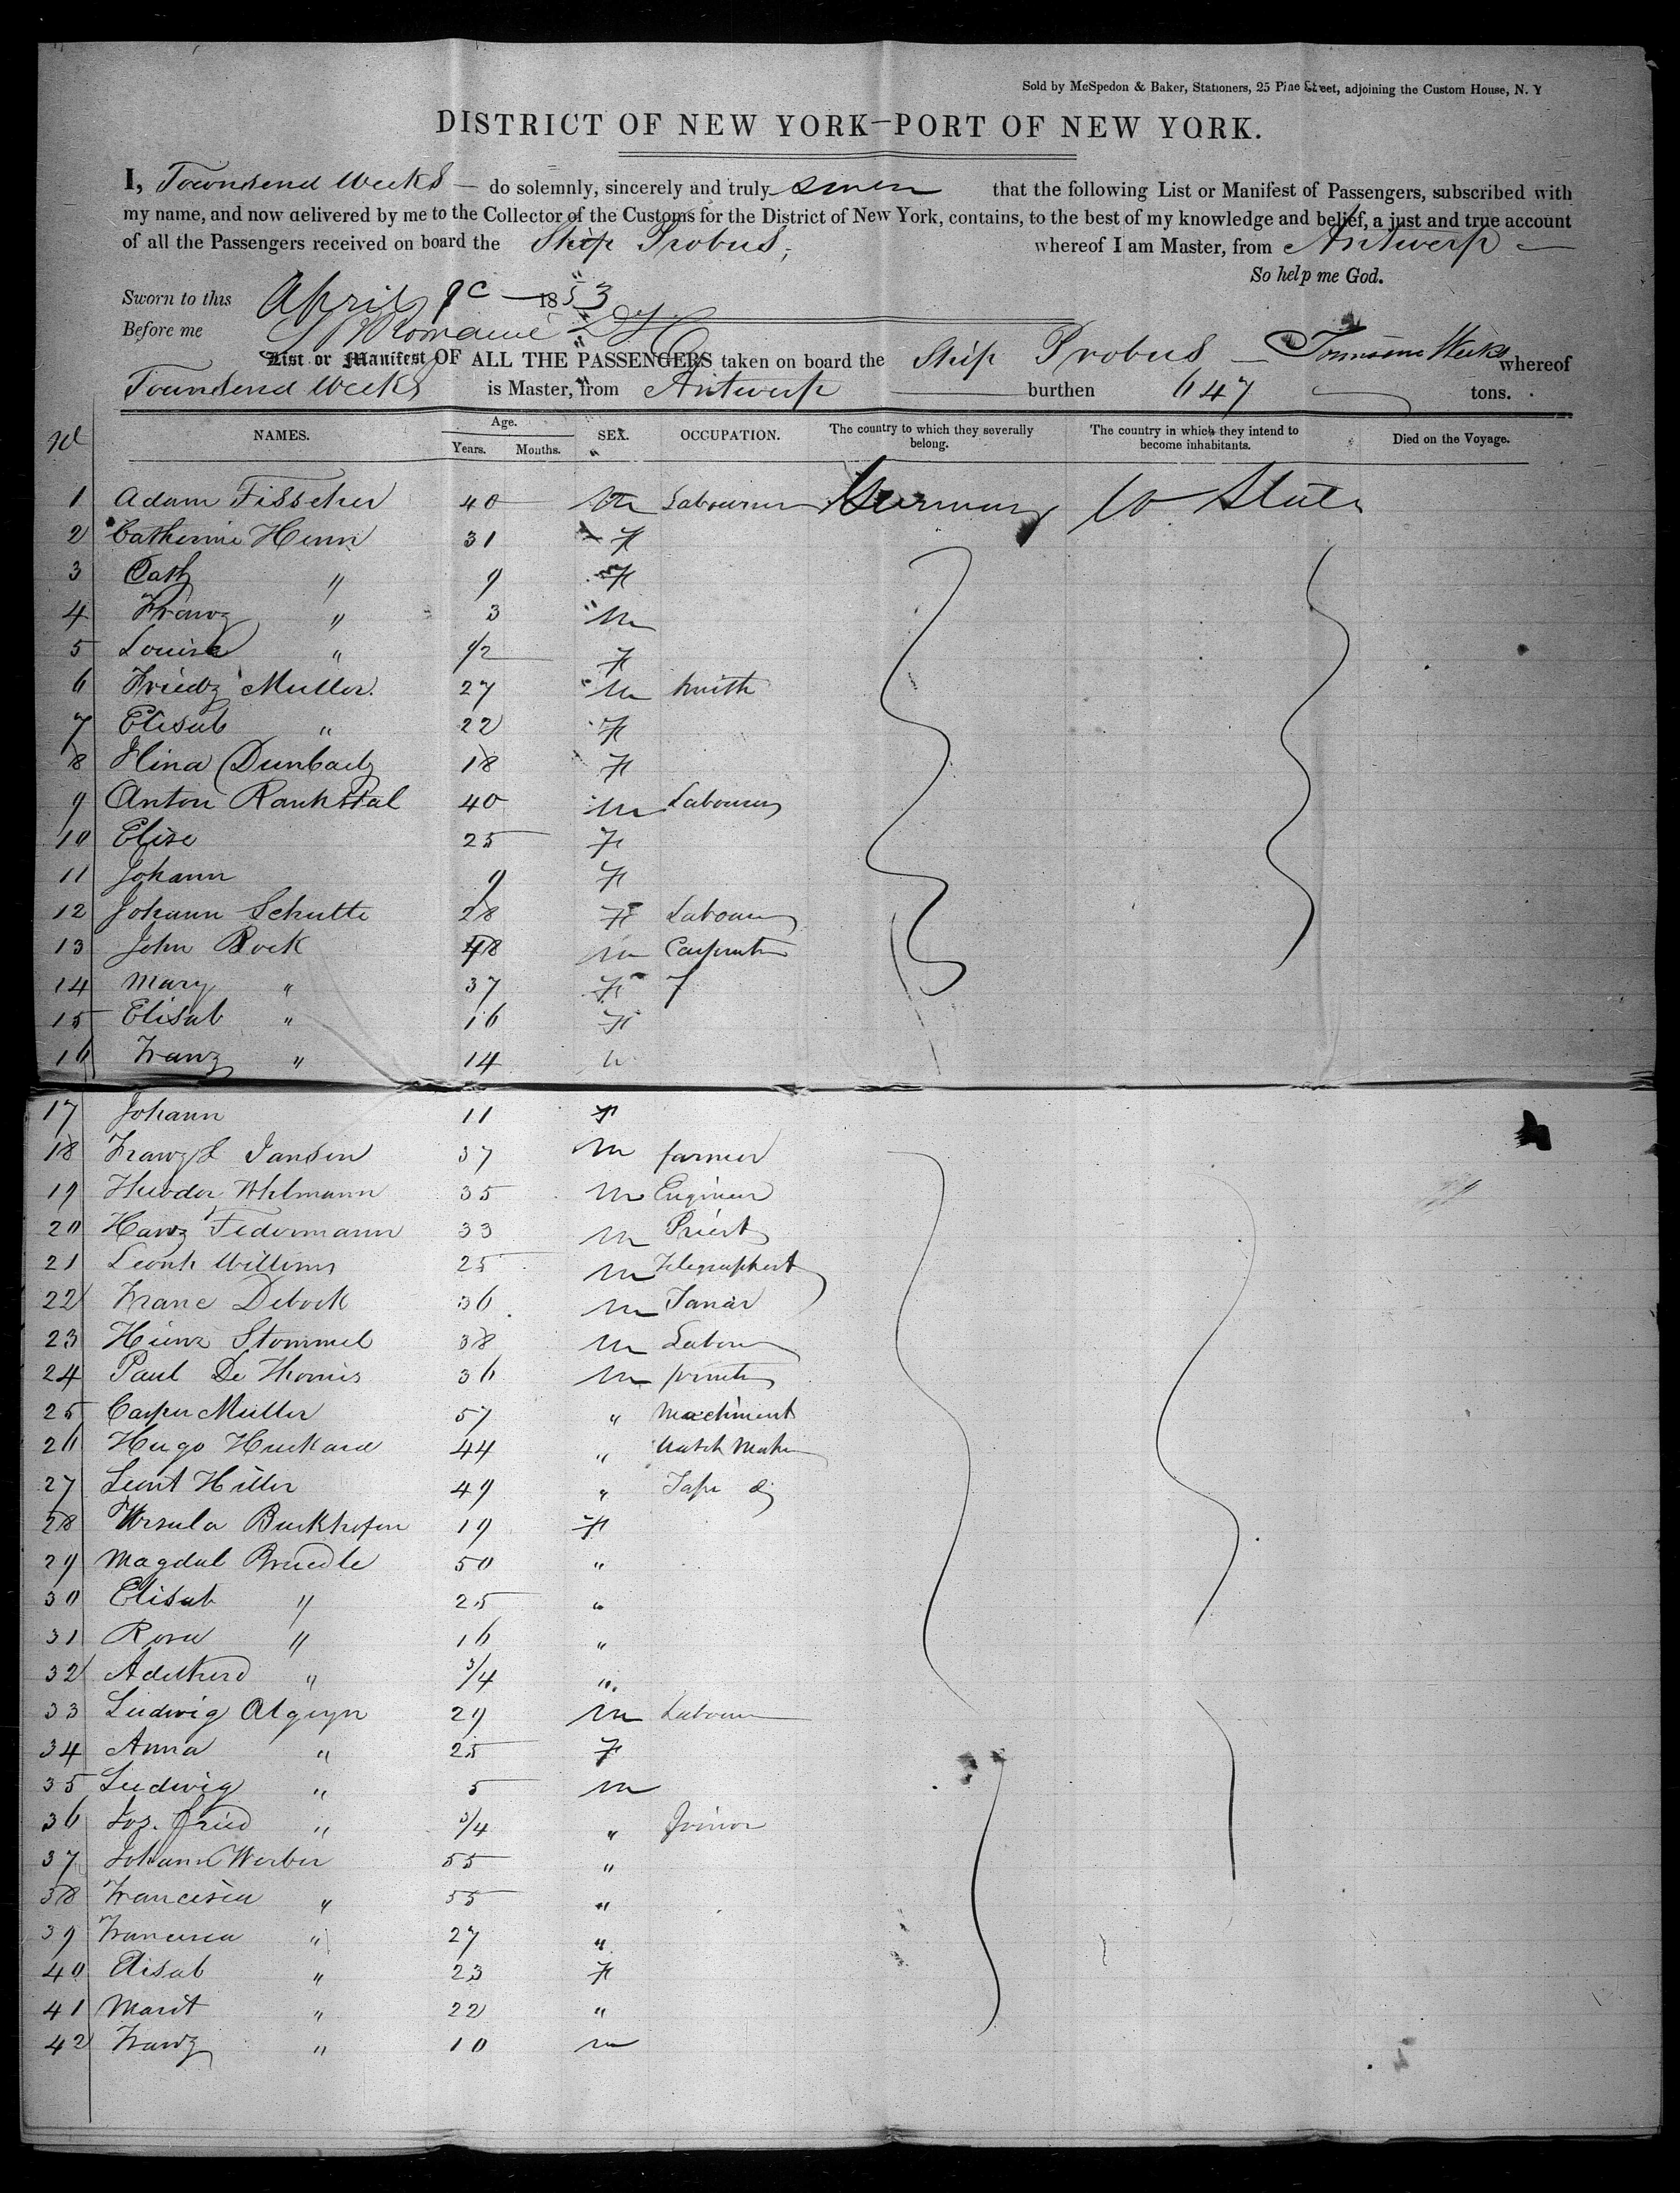 Sold by McSpedon & Baker, Stationers, 25 Pine Street, adjoining the Custom House, N. Y
DISTRICT OF NEW YORK—PORT OF NEW YORK.
I, Townsend Weeks — do solemnly, sincerely and truly swear that the following List or Manifest of Passengers, subscribed with
my name, and now delivered by me to the Collector of the Customs for the District of New York, contains, to the best of my knowledge and belief, a just and true account
of all the Passengers received on board the Ship Probus, whereof I am Master, from Antwerp —
So help me God.
Sworn to this April 9 — 1853
Before me
List or Manifest OF ALL THE PASSENGERS taken on board the Ship Probus — Townsend Weeks whereof
Townsend Weeks is Master, from Antwerp burthen 647 tons.
NAMES. Age. Years. Months. SEX. OCCUPATION. The country to which they severally belong. The country in which they intend to become inhabitants. Died on the Voyage.
1 Adam Fisscher 40 M Labourer Germany U States
2 Catherine Henn 31 F
3 Cath " 9 F
4 Franz " 3 M
5 Louise " 1/2 F
6 Friedz Muller 27 M Smith
7 Elisab " 22 F
8 Mina Dunbach 18 F
9 Anton Rankstal 40 M Labourer
10 Elise 25 F
11 Johann 9 F
12 Johann Schutte 28 F Labourer
13 John Bock 48 M Carpenter
14 Mary " 37 F
15 Elisab " 16 F
16 Franz " 14
17 Johann 11 F
18 Franz L Jansen 37 M farmer
19 Theodor Uhlmann 35 M Engineer
20 Hanz Federmann 33 M Priest
21 Leonh Willims 25 M Telegraphist
22 Franc Debock 36 M Tanar
23 Heinr Stommel 38 M Labourer
24 Paul De Thomis 36 M printer
25 Casper Muller 57 " Machinist
26 Hugo Huckard 44 " Watch Maker
27 Leont Hiller 49 "
28 Ursula Buckhofen 19 F
29 Magdal Bruedle 50 "
30 Elisab " 25 "
31 Rosa " 16 "
32 " 3/4 "
33 Ludwig 29 M Labourer
34 Anna " 25 F
35 Ludwig " 5 M
36 Jos. fried " 3/4 " Joinor
37 Johann Werber 55 "
38 Francisca " 55 "
39 Francisca " 27 "
40 Elisab " 23 F
41 Marit " 22 "
42 Franz " 10 M